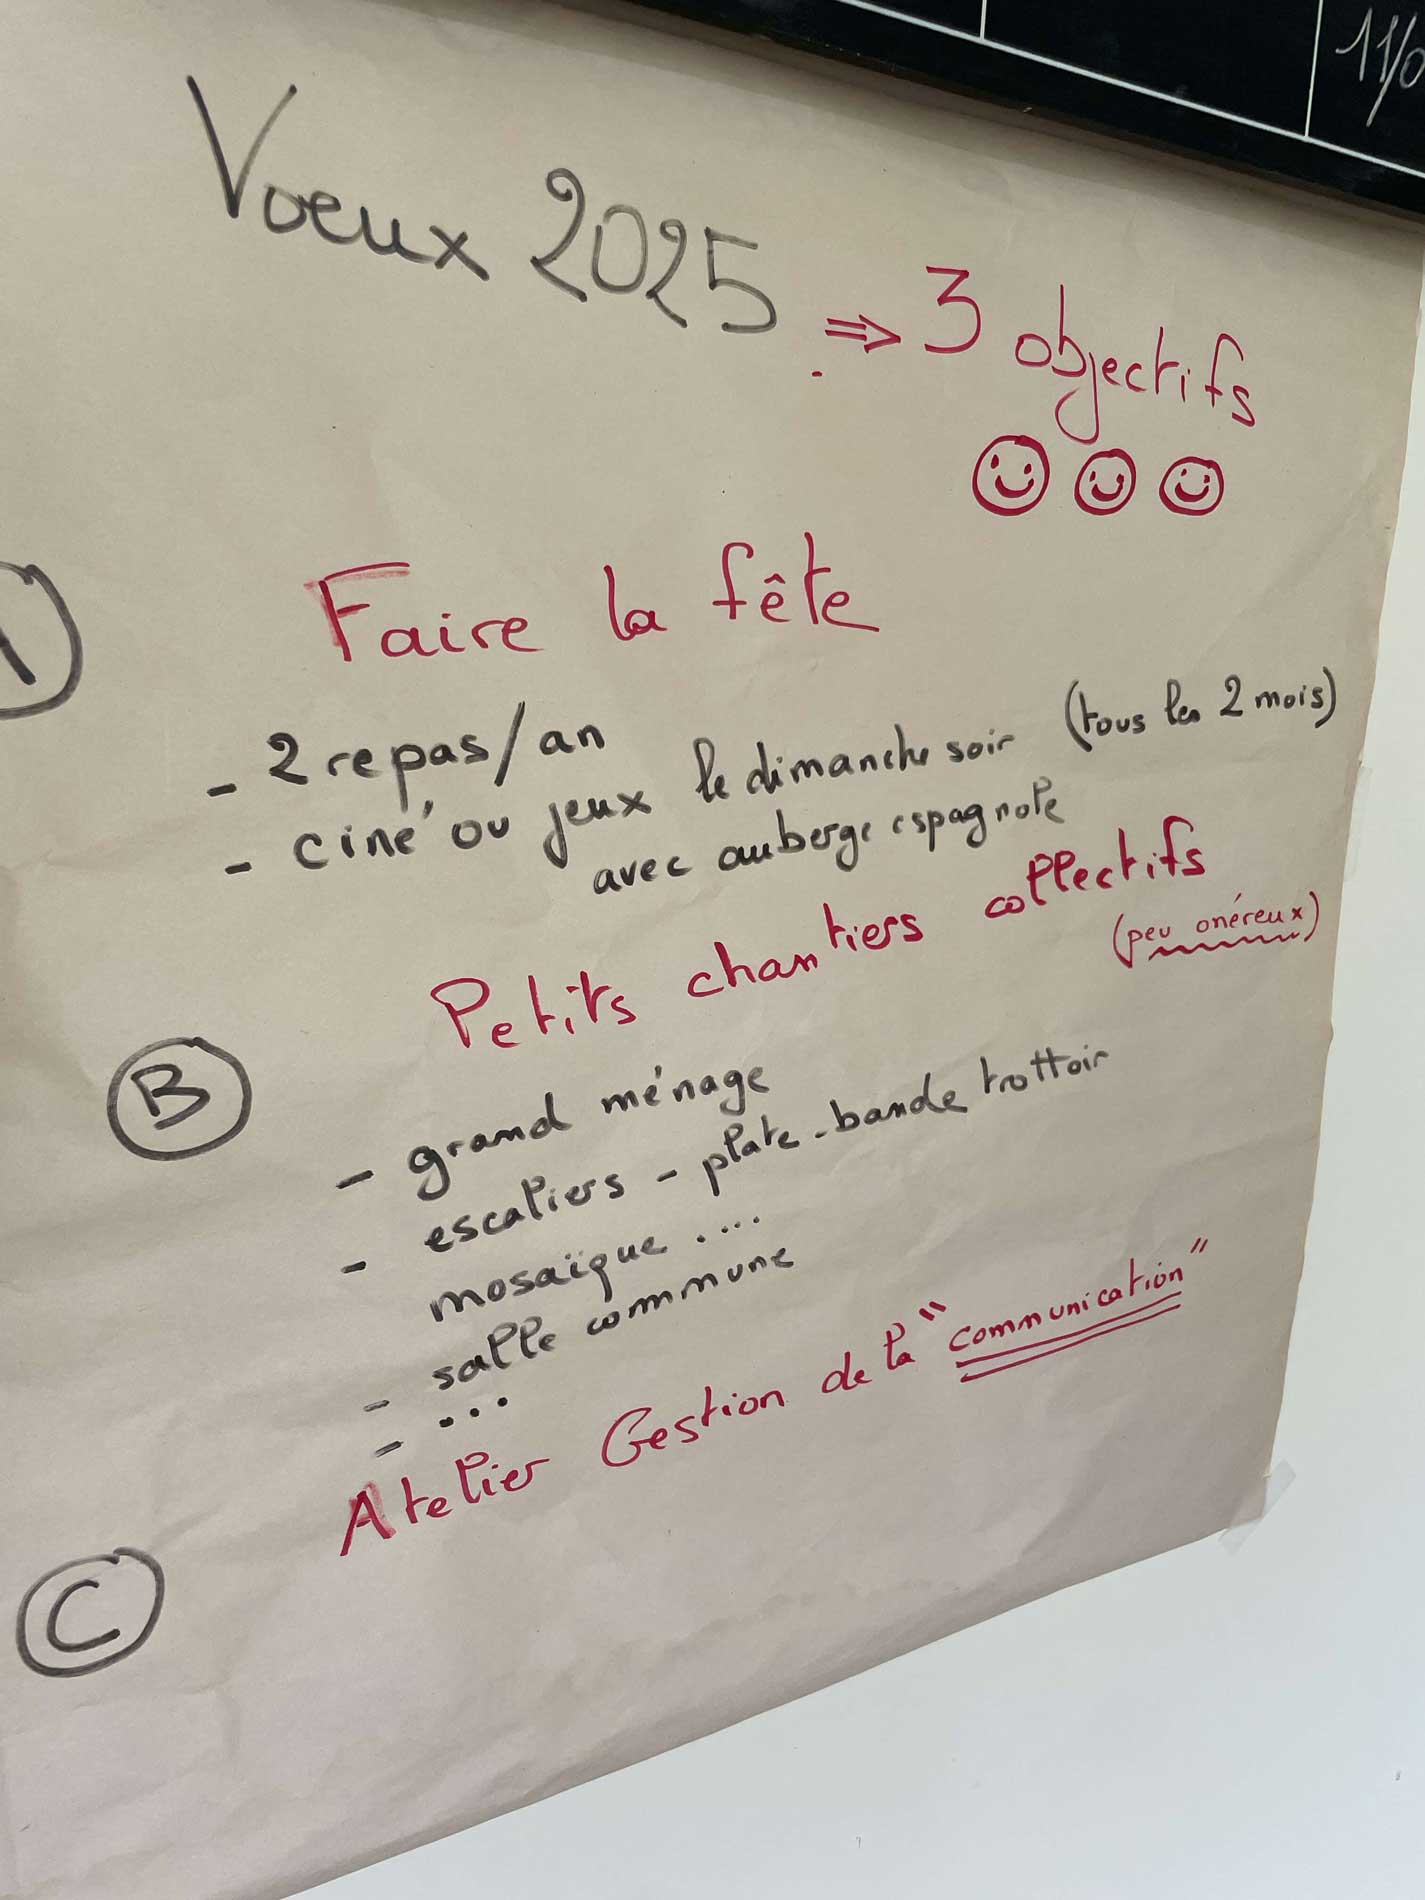 11/0
Voeux 2025 ⇒ 3 objectifs
Faire la fête
- 2 repas/an
- ciné ou jeux le dimanche soir (tous les 2 mois)
avec auberge espagnole
B Petits chantiers collectifs
(peu onéreux)
- grand ménage
- escaliers - plate-bande trottoir
mosaïque ....
- salle commune
- ...
C Atelier Gestion de la "communication"